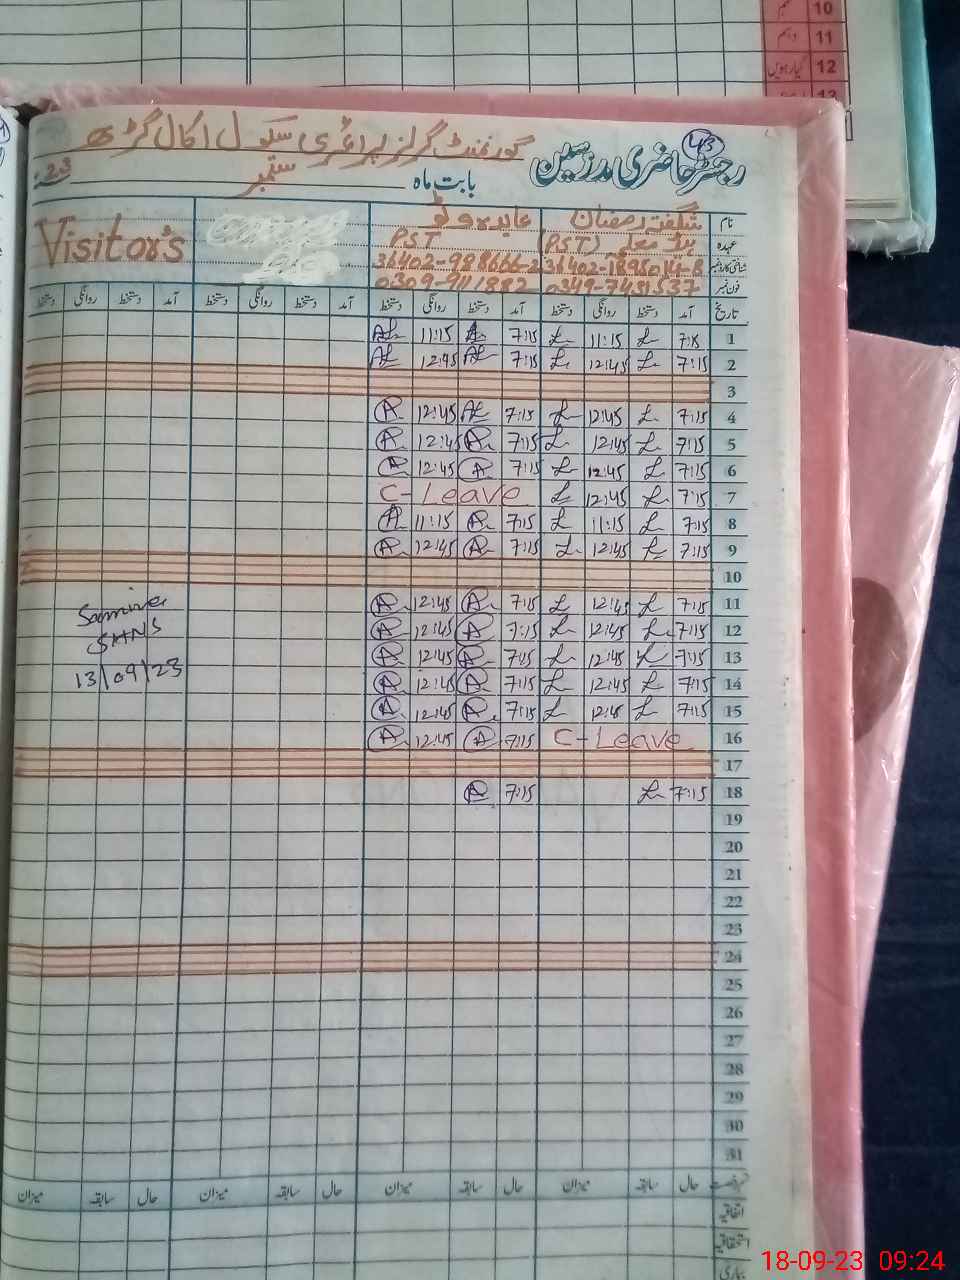 10
دہم 11
گیارہویں 12
13
43
رجسٹر حاضری مدرسین
گورنمنٹ گرلز پرائمری سکول اکال گڑھ
بابت ماہ ستمبر 23
نام شگفتہ رمضان عابدہ وٹو Visitor's
عہدہ ہیڈ معلمہ (PST) PST
شناختی کارڈ نمبر
فون نمبر 0349-7481537 0309-9411882
تاریخ آمد دستخط روانگی دستخط آمد دستخط روانگی دستخط آمد دستخط روانگی دستخط آمد دستخط روانگی دستخط
1 7:15 11:15 7:15 11:15
2 7:15 12:45 7:15 12:45
3
4 7:15 12:45 7:15 12:45
5 7:15 12:45 7:15 12:45
6 7:15 12:45 7:15 12:45
7 7:15 12:45 C-Leave
8 7:15 11:15 7:15 11:15
9 7:15 12:45 7:15 12:45
10
11 7:15 12:45 7:15 12:45 Samina
12 7:15 12:45 7:15 12:45 SHNS
13 7:15 12:45 7:15 12:45 13/09/23
14 7:15 12:45 7:15 12:45
15 7:15 12:45 7:15 12:45
16 C-Leave 7:15 12:45
17
18 7:15 7:15
19
20
21
22
23
24
25
26
27
28
29
30
31
حال سابقہ میزان حال سابقہ میزان حال سابقہ میزان حال سابقہ میزان
اتفاقیہ
استحقاقیہ
بیماری
18-09-23 09:24